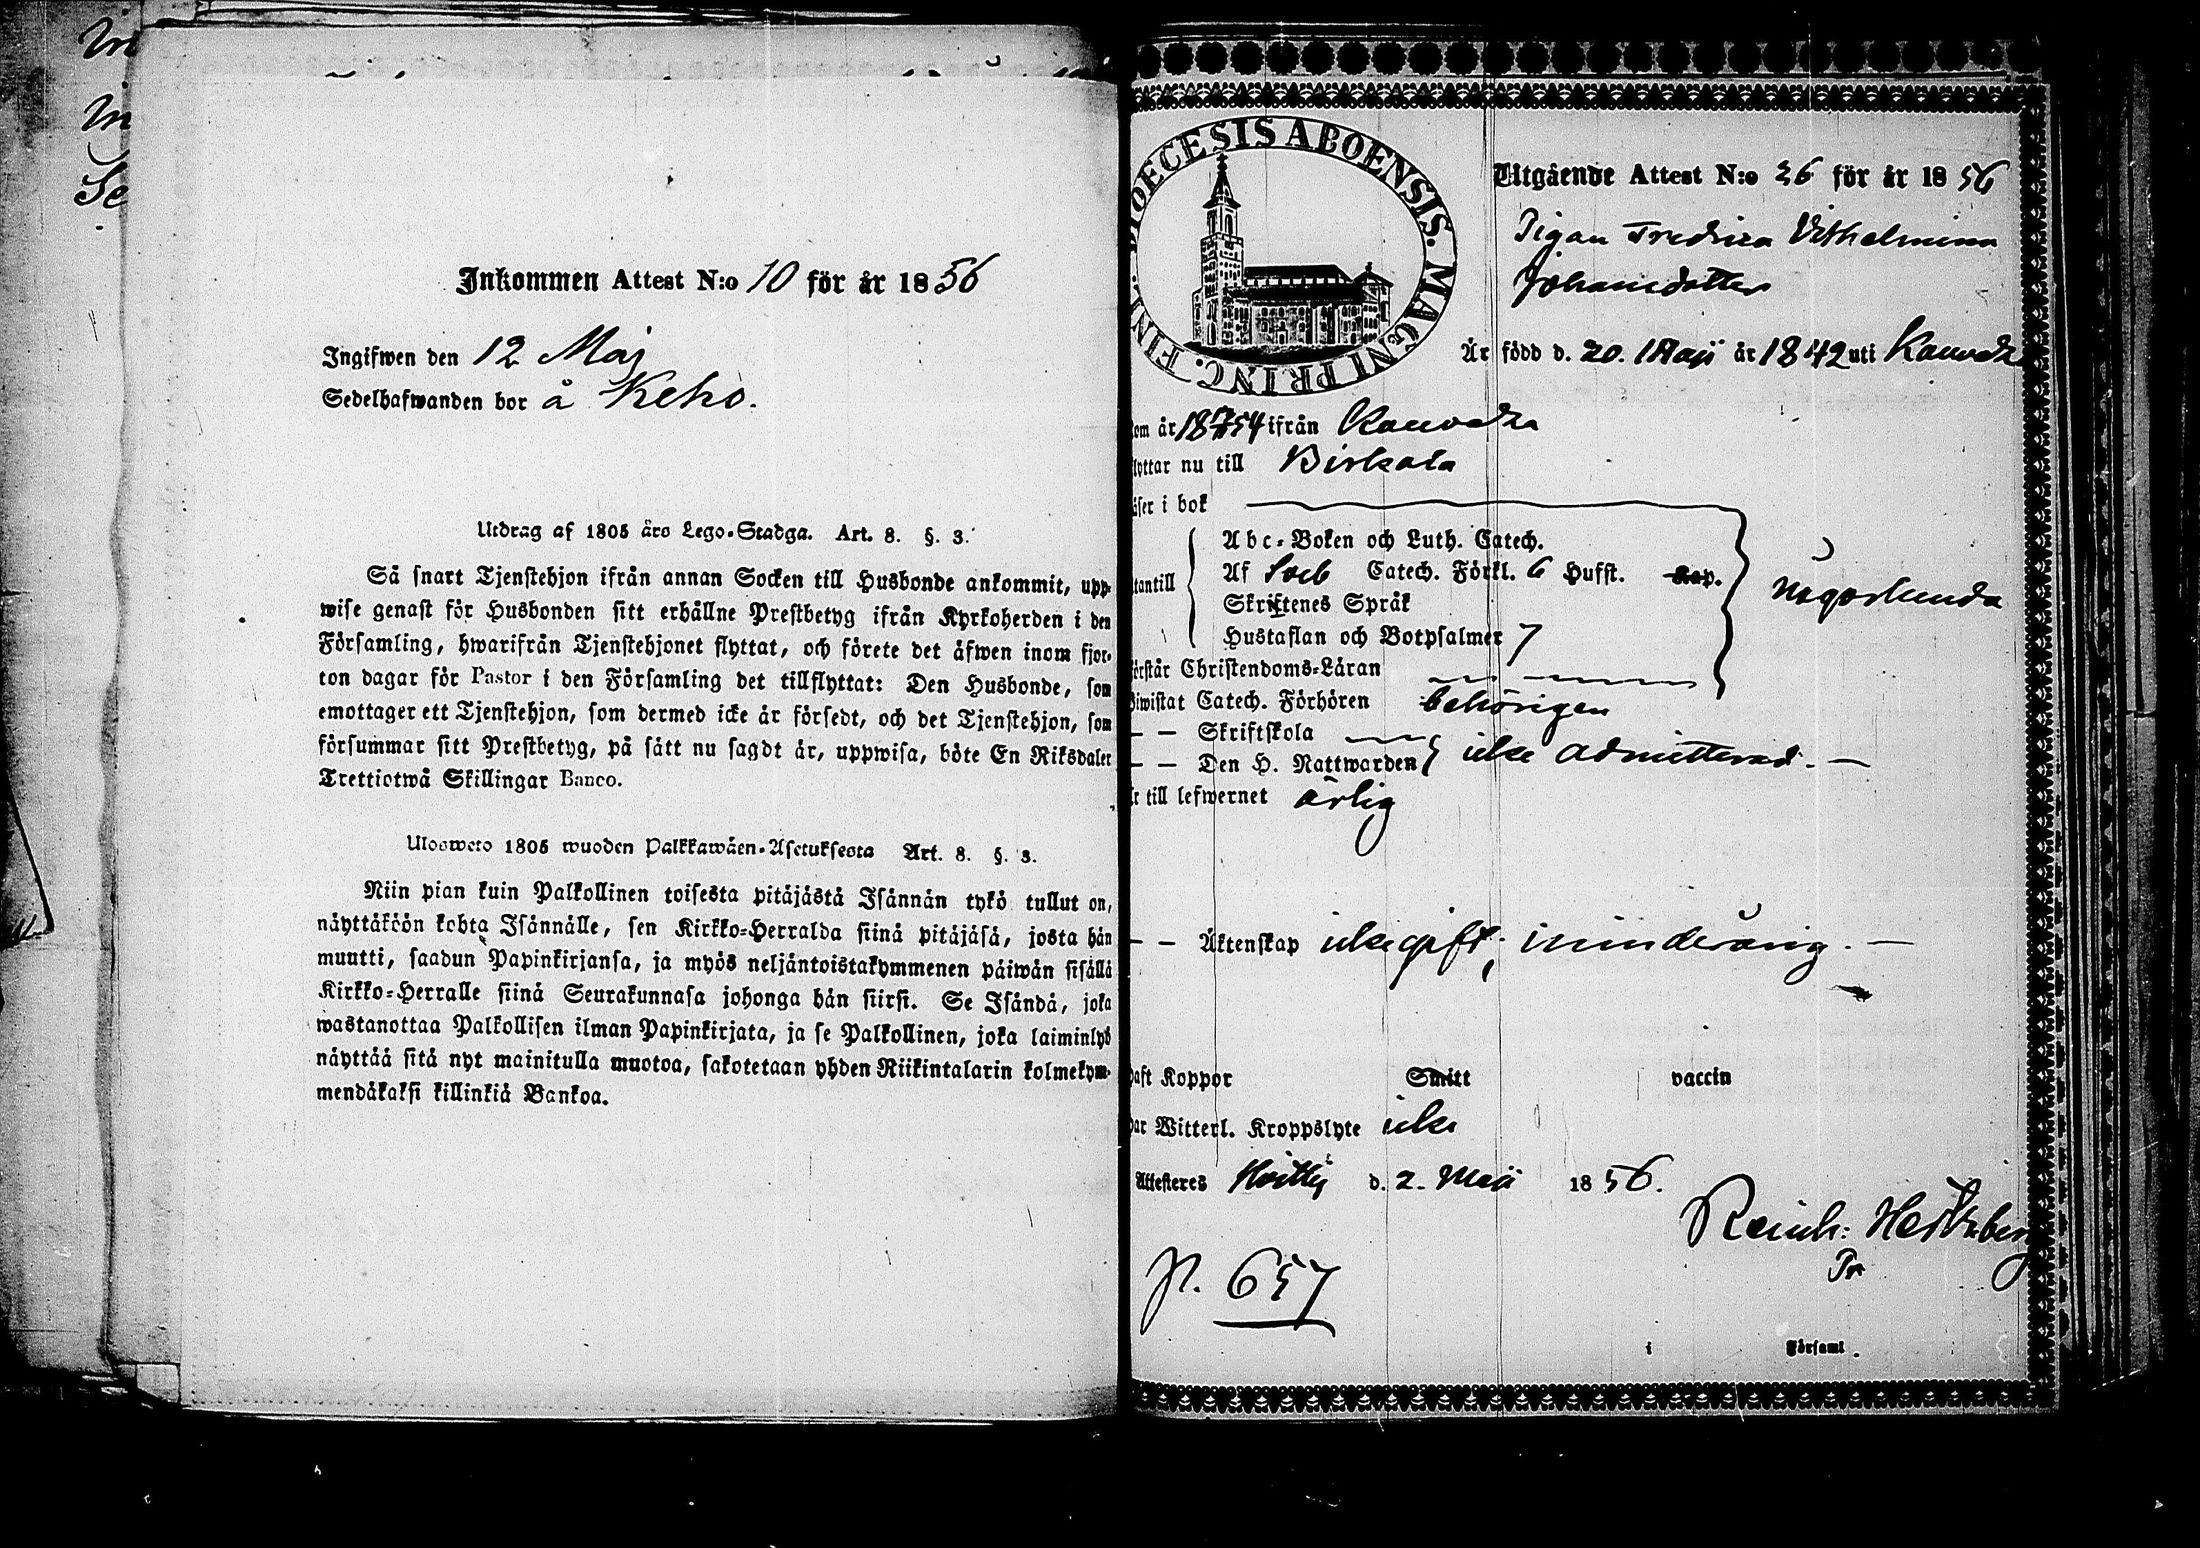 Inkommen Attest N:o 10 för år 1856
Ingifwen den 12 Maj
Sedelhafwanden bor å Keho.
Utdrag af 1805 års Lego-Stadga. Art. 8. §. 3.
Så snart Tjenstehjon ifrån annan Socken till Husbonde ankommit, upp-
wise genast för Husbonden sitt erhållne Prestbetyg ifrån Kyrkoherden i den
Församling, hwarifrån Tjenstehjonet flyttat, och förete det äfwen inom fjor-
ton dagar för Pastor i den Församling det tillflyttat: Den Husbonde, som
emottager ett Tjenstehjon, som dermed icke är försedt, och det Tjenstehjon, som
försummar sitt Prestbetyg, på sätt nu sagdt är, uppwisa, böte En Riksdaler
Trettiotwå Skillingar Banco.
Ulosweto 1805 wuoden Palkkawäen-Asetuksesta Art. 8. §. 3.
Niin pian kuin Palkollinen toisesta pitäjästä Isännän tykö tullut on,
näyttäköön kohta Isännälle, sen Kirkko-Herralda siinä pitäjäsä, josta hän
muutti, saadun Papinkirjansa, ja myös neljäntoistakymmenen päiwän sisällä
Kirkko-Herralle siinä Seurakunnasa johonga hän siirsi. Se Isändä, joka
wastanottaa Palkollisen ilman Papinkirjata, ja se Palkollinen, joka laiminlyö
näyttää sitä nyt mainitulla muotoa, sakotetaan yhden Riikintalarin kolmekym-
mendäkaksi killinkiä Bankoa.
DIOECESIS ABOENSIS. MAGNI PRINC. FINL.
Utgående Attest N:o 26 för år 1856
Pigan Fredrica Vilhelmina
Johansdotter
Är född d. 20. Maji år 1842 uti Kauvatsa
kom år 1854 ifrån Kauvatsa
flyttar nu till Birkala
läser i bok
Abc-Boken och Luth. Catech.
utantill Af Sveb Catech. Förkl. 6 Hufst. Kap. någorlunda
Skriftenes Språk
Hustaflan och Botpsalmer 7
förstår Christendoms-Läran
Biwistat Catech. Förhören behörigen
— — Skriftskola
— — Den H. Nattwarden icke admitterad. —
är till lefwernet ärlig
— — Äktenskap icke gift; minderårig. —
haft Koppor Smitt vaccin
har Witterl. Kroppslyte icke
Attesteres Hvittis d. 2. Maji 1856.
Reinh: Hertzberg
Pr
p. 657
i Församl.